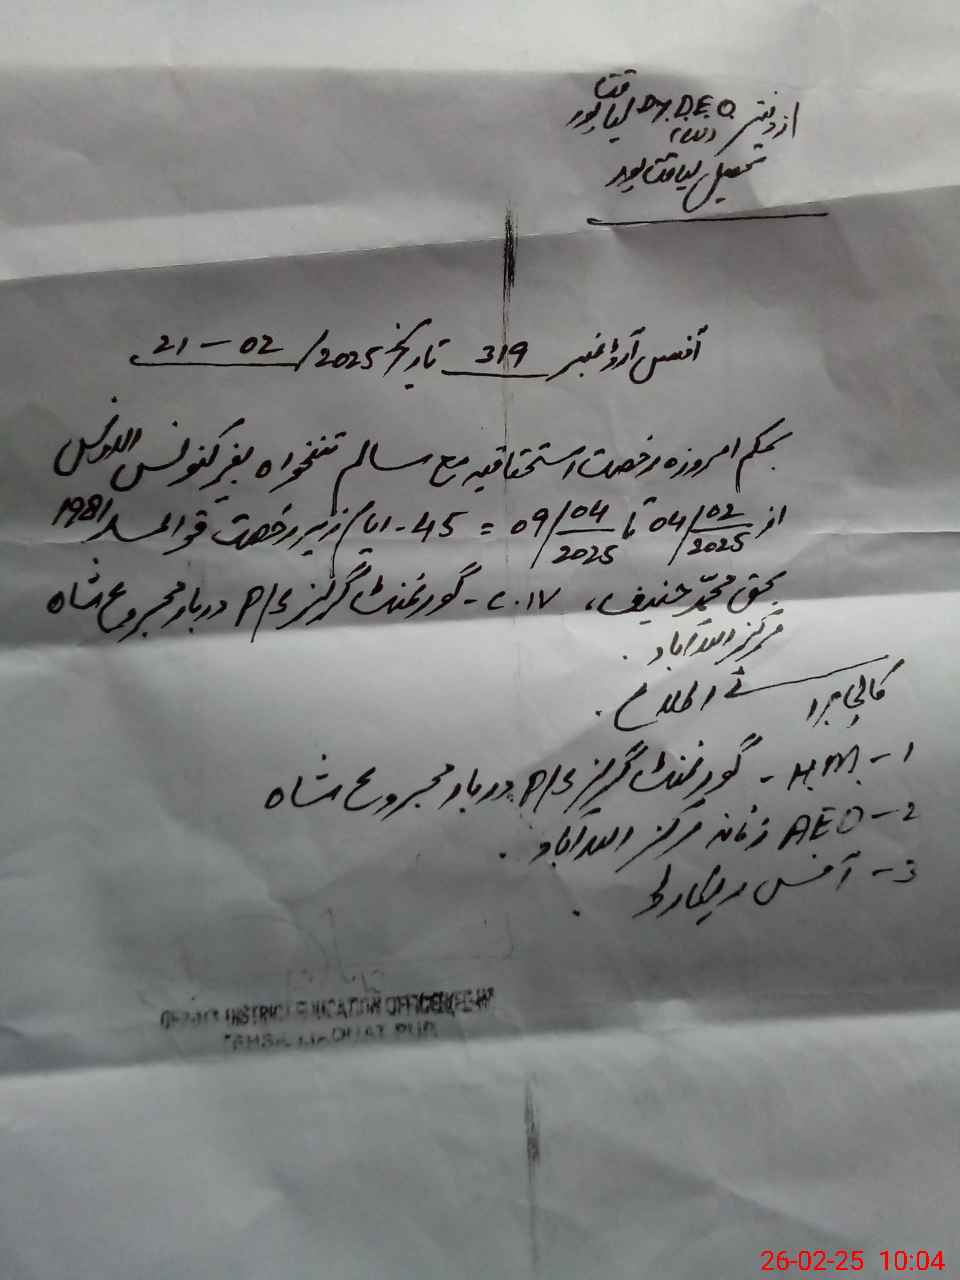 از دفتر Dy.D.E.O لیاقت پور
(W)
تحصیل لیاقت پور
آفس آرڈر نمبر 319 تاریخ 21-02/2025
بحکم امروزہ رخصت استحقاقیہ مع سالم تنخواہ بغیر کنونس الاونس
از 04/02/2025 تا 09/04/2025 = 45-ایام زیر رخصت قوائد 1981
بحق محمد حنیف، C.IV- گورنمنٹ گرلز P/S دربار مجروع شاہ
مرکز اللہ آباد.
کاپی برائے اطلاع.
1- H.M- گورنمنٹ گرلز P/S دربار مجروع شاہ
2- AEO زنانہ مرکز اللہ آباد.
3- آفس ریکارڈ.
DISTRICT EDUCATION OFFICER
LIAQUAT PUR
26-02-25 10:04